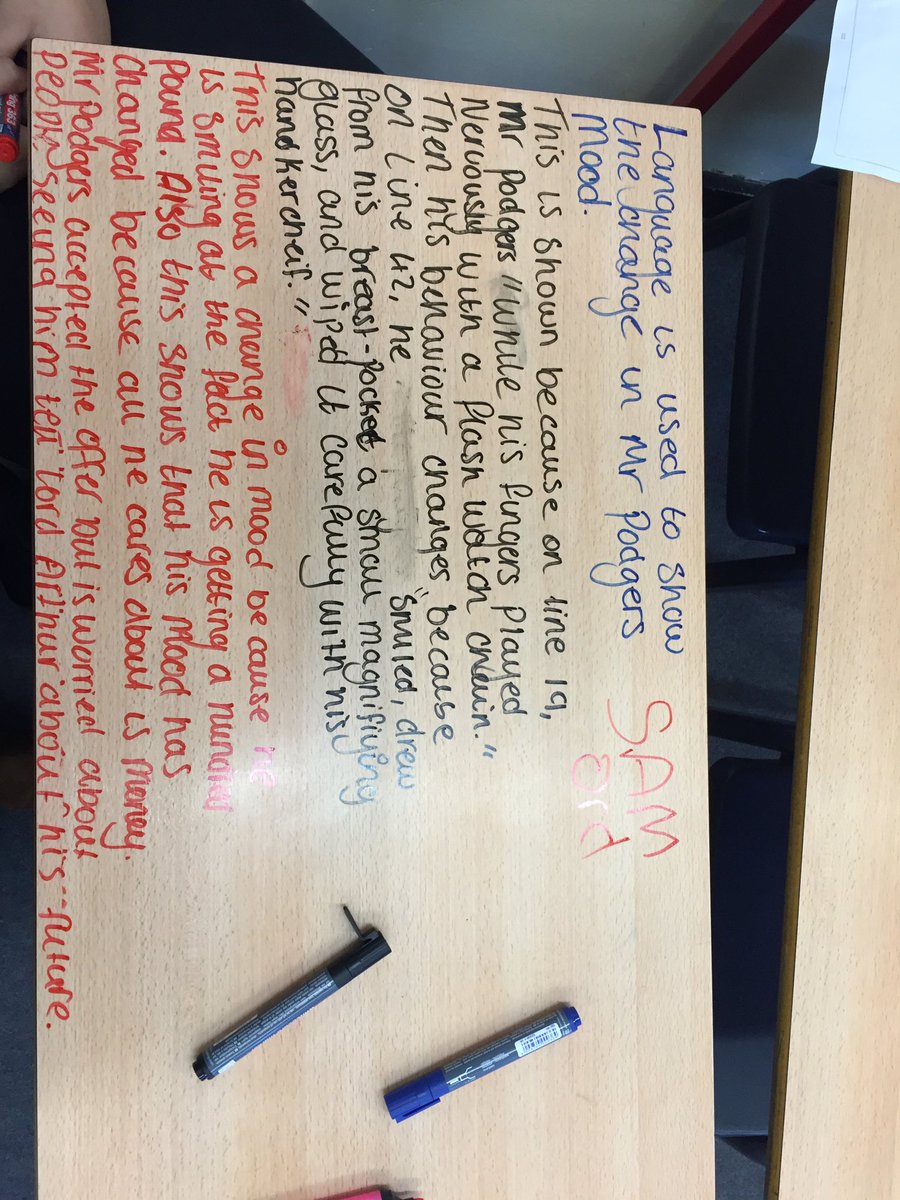 Language is used to show
the change in Mr Podgers
Mood.
SAM
ord
This is shown because on line 19,
Mr Podgers "while his fingers played
Nervously with a flash watch chain."
Then his behaviour changes because
on line 42, he "smiled, drew
from his breast-pocket a small magnifiying
glass, and wiped it carefully with his
handkercheif."
This shows a change in mood because he
is smiling at the fact he is getting a hundred
pound. Also this shows that his mood has
changed because all he cares about is money.
Mr Podgers accepted the offer but is worried about
people seeing him tell Lord Arthur about his future.